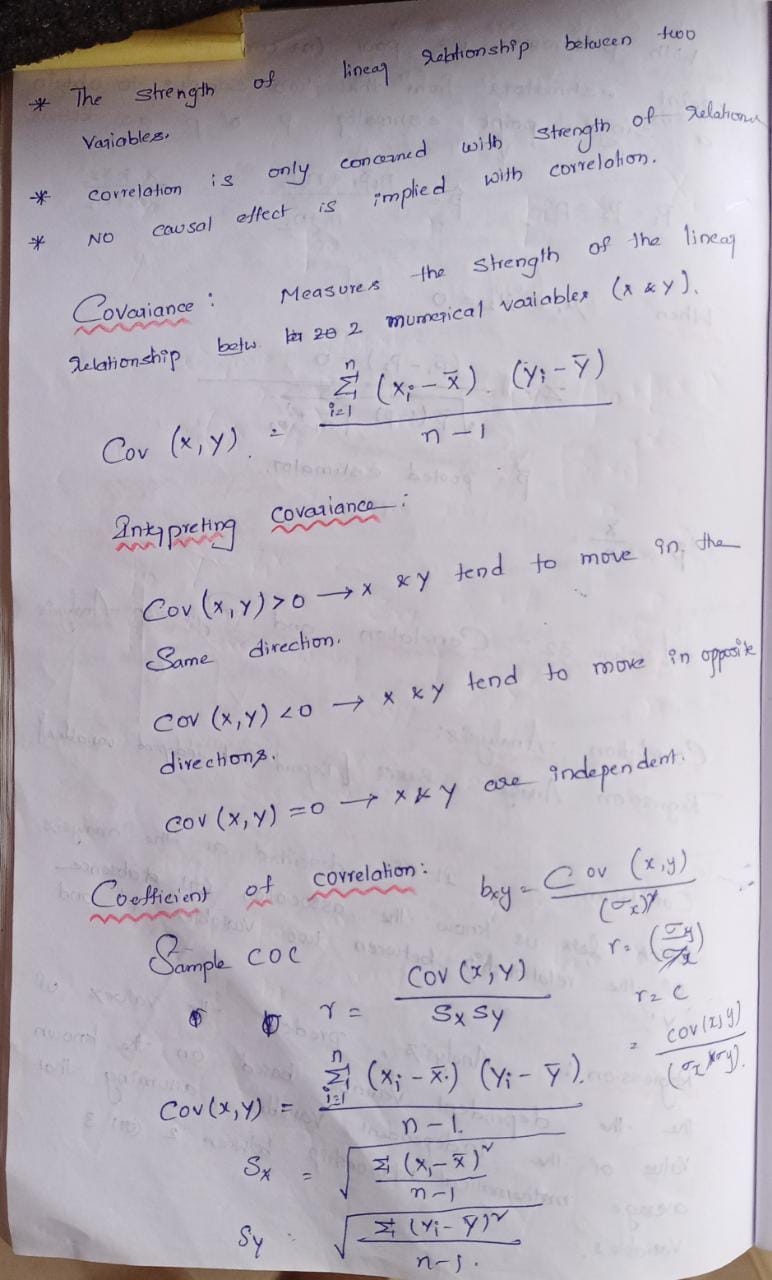 * The strength of linear relationship between two
Variables.
* correlation is only concerned with strength of relation
* NO causal effect is implied with correlation.
Covariance : Measures the strength of the linear
relationship betw 2 numerical variables (x & y).
Cov (x, y) = \frac{\sum_{i=1}^{n} (x_i - \bar{x}) (y_i - \bar{y})}{n-1}
Interpreting covariance :
Cov (x, y) > 0 → x & y tend to move in the
Same direction.
Cov (x, y) < 0 → x & y tend to move in opposite
directions.
cov (x, y) = 0 → x & y are independent.
Coefficient of correlation : bxy = \frac{Cov (x,y)}{(σ_x)^2}
Sample COC
r = \frac{Cov (x, y)}{S_x S_y}
r = (\frac{σ_y}{σ_x})
r = c
= \frac{cov(x,y)}{(σ_x σ_y)}.
Cov(x, y) = \frac{\sum_{i=1}^{n} (x_i - \bar{x}) (y_i - \bar{y})}{n-1}.
S_x = \sqrt{\frac{\sum (x_i - \bar{x})^2}{n-1}}
S_y = \sqrt{\frac{\sum (y_i - \bar{y})^2}{n-1}}.